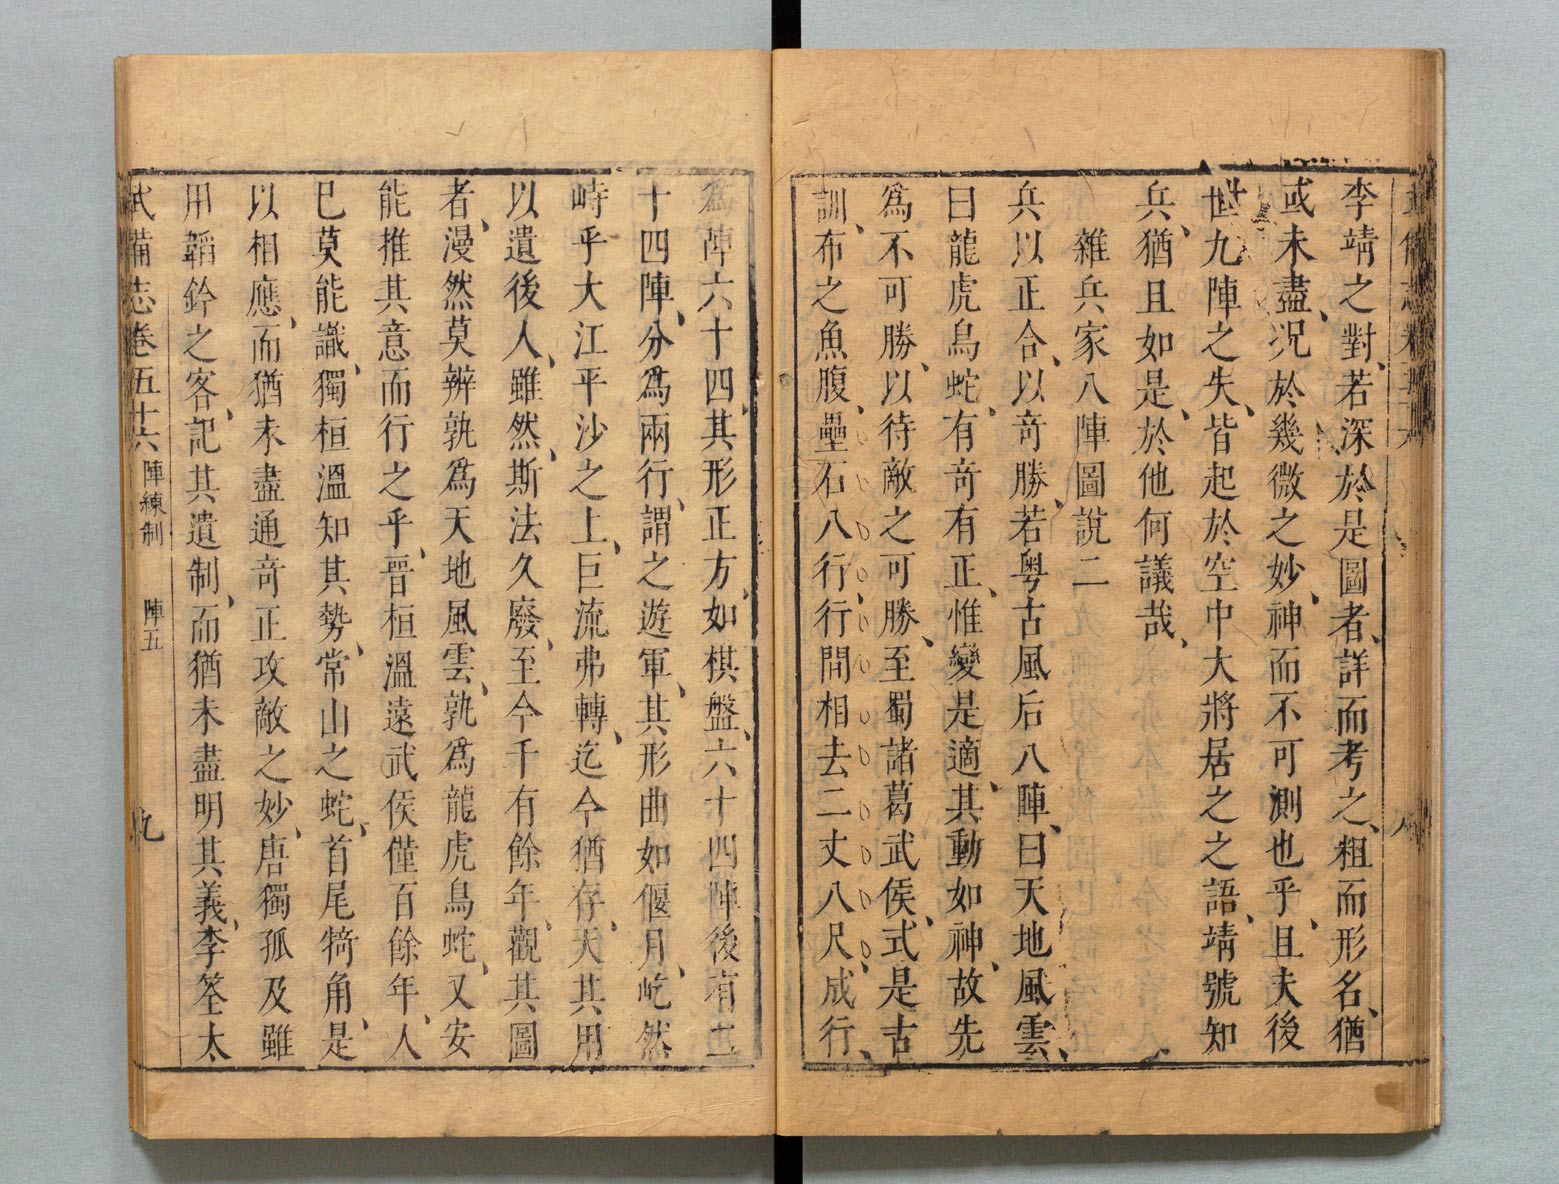 李靖之對、若深於是圖者、詳而考之、粗而形名、猶
或未盡、况於幾微之妙、神而不可測也乎、且夫後
世九陣之失、皆起於空中大將居之之語、靖號知
兵、猶且如是、於他何議哉、
雜兵家八陣圖說二
兵以正合、以竒勝、若粤古風后八陣、曰天地風雲、
曰龍虎鳥蛇、有竒有正、惟變是適、其動如神、故先
為不可勝、以待敵之可勝、至蜀諸葛武侯、式是古
訓、布之魚腹、壘石八行、行間相去二丈八尺、成行、
為陣六十四、其形正方、如棋盤、六十四陣後有二
十四陣、分為兩行、謂之遊軍、其形曲如偃月、屹然
峙乎大江平沙之上、巨流弗轉、迄今猶存、天其用
以遺後人、雖然、斯法久廢、至今千有餘年、觀其圖
者、漫然莫辨孰為天地風雲、孰為龍虎鳥蛇、又安
能推其意而行之乎、晉桓溫遠武侯僅百餘年、人
已莫能識、獨桓溫知其勢、常山之蛇、首尾犄角、是
以相應、而猶未盡通竒正攻敵之妙、唐獨孤及雖
用韜鈐之客、記其遺制、而猶未盡明其義、李筌太
武備志卷五十六 陣練制 陣五 九